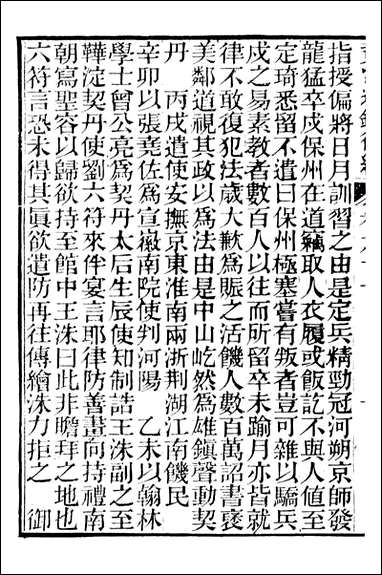 指授偏將日月訓習之由是定兵精勁冠河朔京師發
龍猛卒戍保州在道竊取人衣履或飯訖不與人值至
定琦悉留不遣曰保州極塞嘗有叛者豈可雜以驕兵
戍之易素教者數百人以往而所留卒未踰月亦皆就
律不敢復犯法歲大歉爲賑之活饑人數百萬詔書褒
美鄰道視其政以爲法由是中山屹然爲雄鎭聲動契
丹　丙戌遣使安撫京東淮南兩浙荆湖江南饑民
辛卯以張堯佐爲宣徽南院使判河陽　乙未以翰林
學士曾公亮爲契丹太后生辰使知制誥王洙副之至
鞾淀契丹使劉六符來伴宴言耶律防善畫向持禮南
朝寫聖容以歸欲持至館中王洙曰此非瞻拜之地也
六符言恐未得其眞欲遣防再往傳繪洙力拒之　御